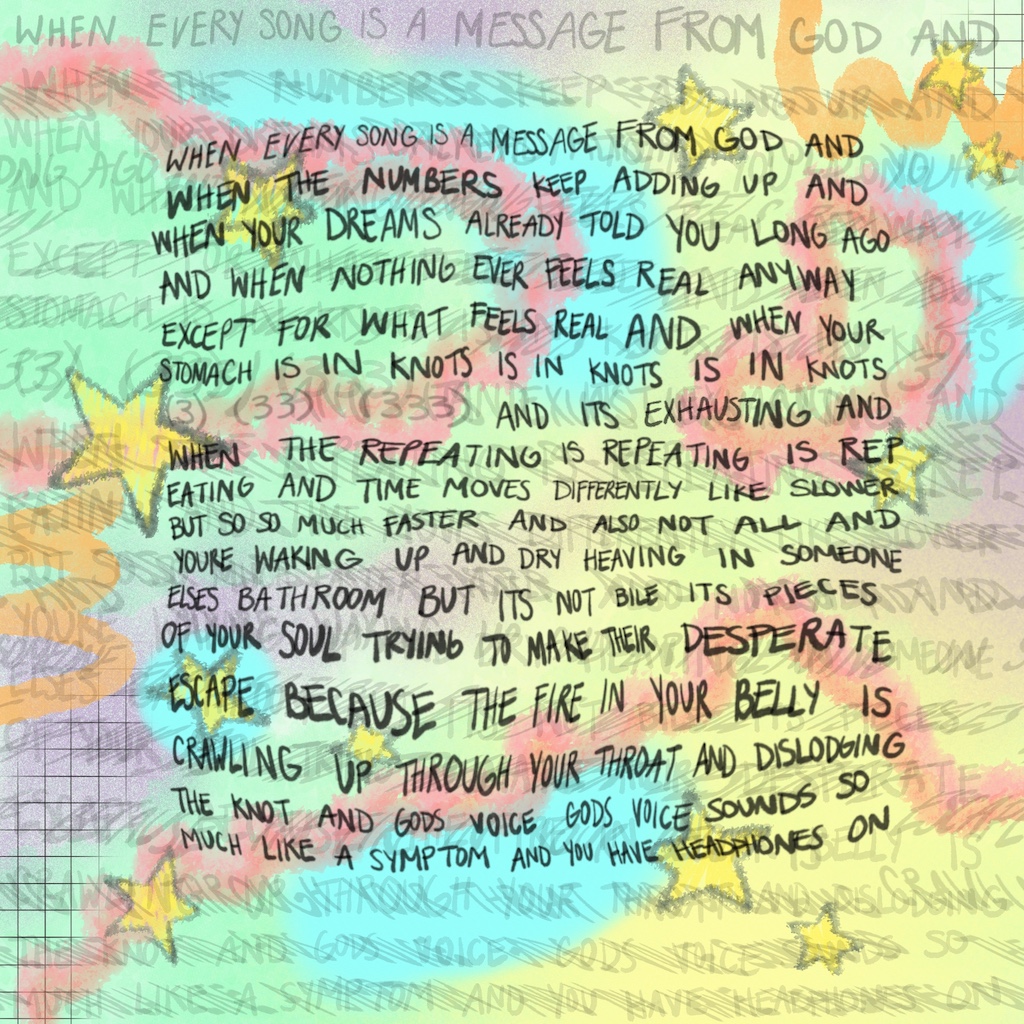 WHEN EVERY SONG IS A MESSAGE FROM GOD AND
WHEN EVERY SONG IS A MESSAGE FROM GOD AND
WHEN THE NUMBERS KEEP ADDING UP AND
WHEN YOUR DREAMS ALREADY TOLD YOU LONG AGO
AND WHEN NOTHING EVER FEELS REAL ANYWAY
EXCEPT FOR WHAT FEELS REAL AND WHEN YOUR
STOMACH IS IN KNOTS IS IN KNOTS IS IN KNOTS
(3) (33) (333) AND ITS EXHAUSTING AND
WHEN THE REPEATING IS REPEATING IS REP
EATING AND TIME MOVES DIFFERENTLY LIKE SLOWER
BUT SO SO MUCH FASTER AND ALSO NOT ALL AND
YOURE WAKING UP AND DRY HEAVING IN SOMEONE
ELSES BATHROOM BUT ITS NOT BILE ITS PIECES
OF YOUR SOUL TRYING TO MAKE THEIR DESPERATE
ESCAPE BECAUSE THE FIRE IN YOUR BELLY IS
CRAWLING UP THROUGH YOUR THROAT AND DISLODGING
THE KNOT AND GODS VOICE GODS VOICE SOUNDS SO
MUCH LIKE A SYMPTOM AND YOU HAVE HEADPHONES ON
THROUGH YOUR THROAT AND DISLODGING
KNOT AND GODS VOICE GODS VOICE SOUNDS SO
MUCH LIKE A SYMPTOM AND YOU HAVE HEADPHONES ON